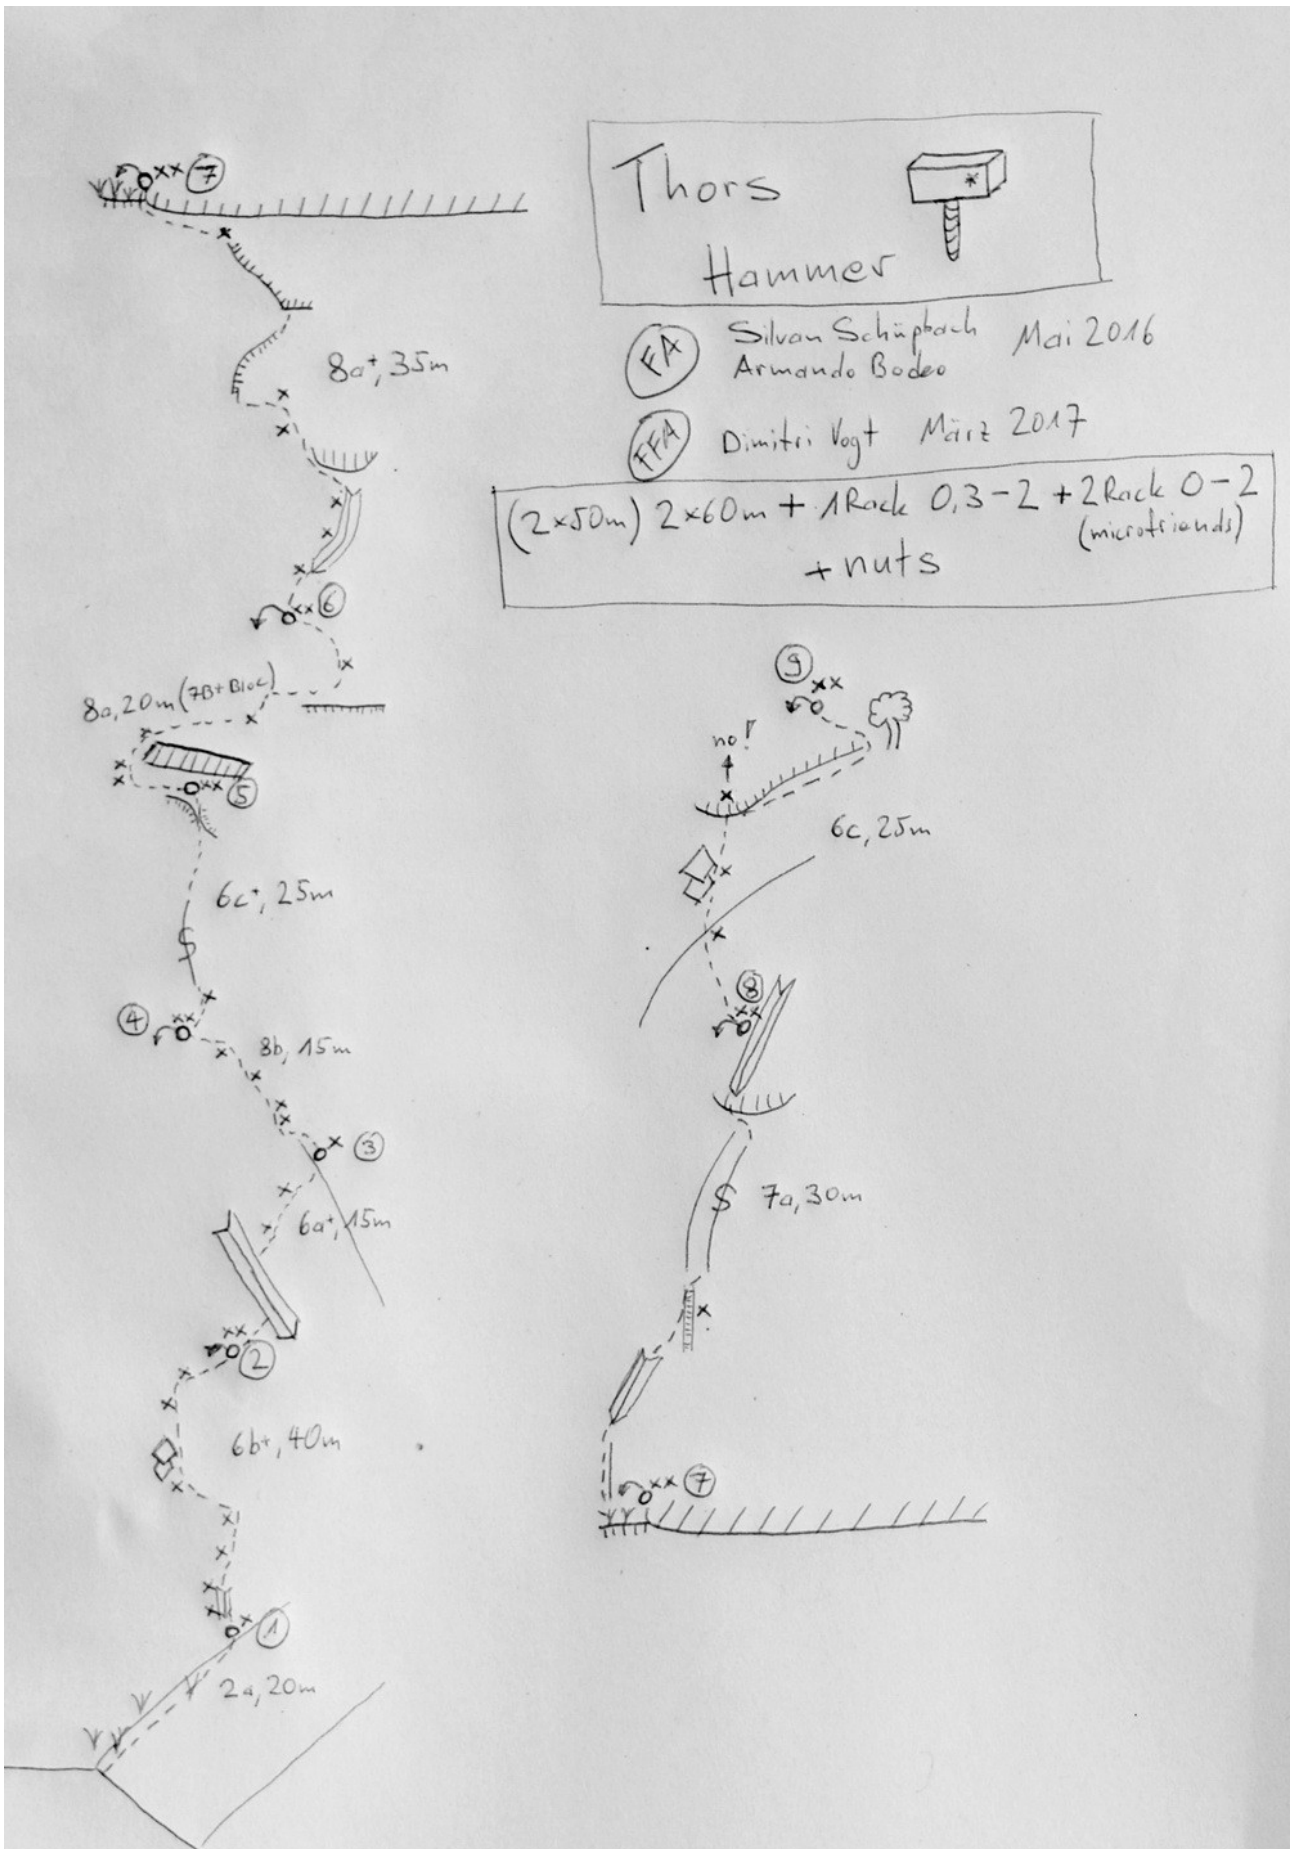 Thors
Hammer
FA Silvan Schüpbach Mai 2016
Armando Bodeo
FFA Dimitri Vogt März 2017
(2x50m) 2x60m + 1Rack 0,3-2 + 2Rack 0-2
(microfriends)
+ nuts
xx 7
8a+, 35m
xx 6
8a, 20m (7B+ Bloc)
xx 5
6c+, 25m
4 xx
8b, 15m
3
6a+, 15m
xx
2
6b+, 40m
1
2a, 20m
9
xx
no!
6c, 25m
8
xx
7a, 30m
xx 7